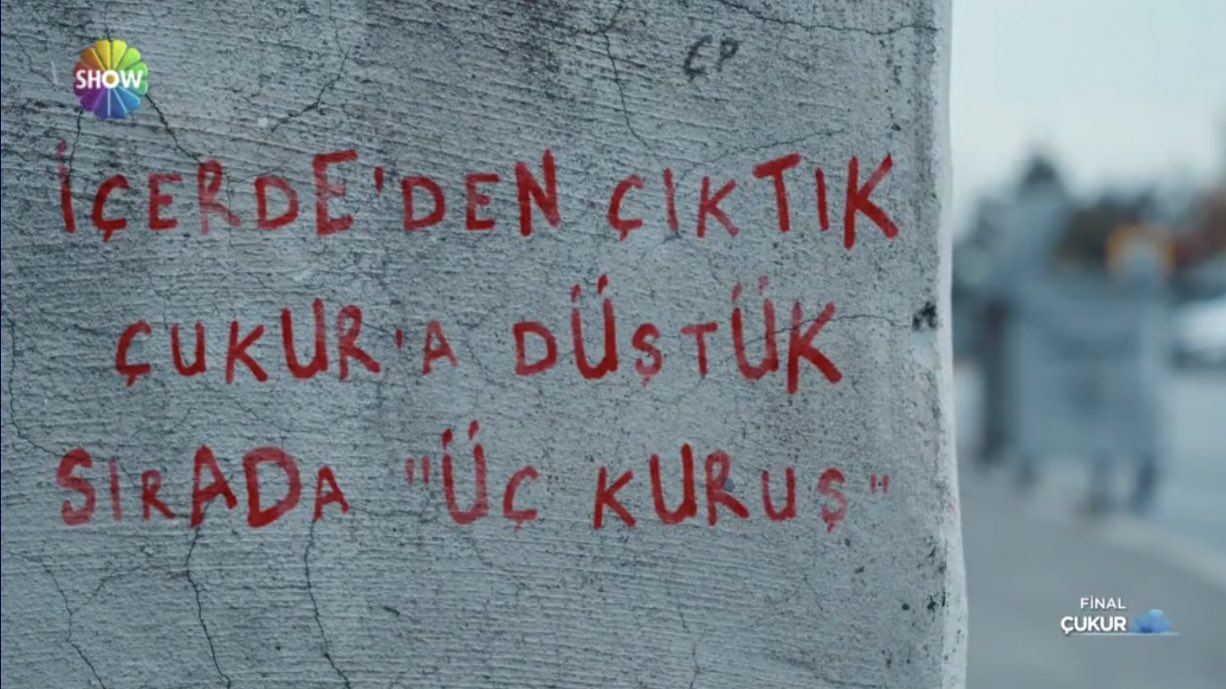 SHOW
ÇP
İÇERDE'DEN ÇIKTIK
ÇUKUR'A DÜŞTÜK
SIRADA "ÜÇ KURUŞ"
FİNAL
ÇUKUR